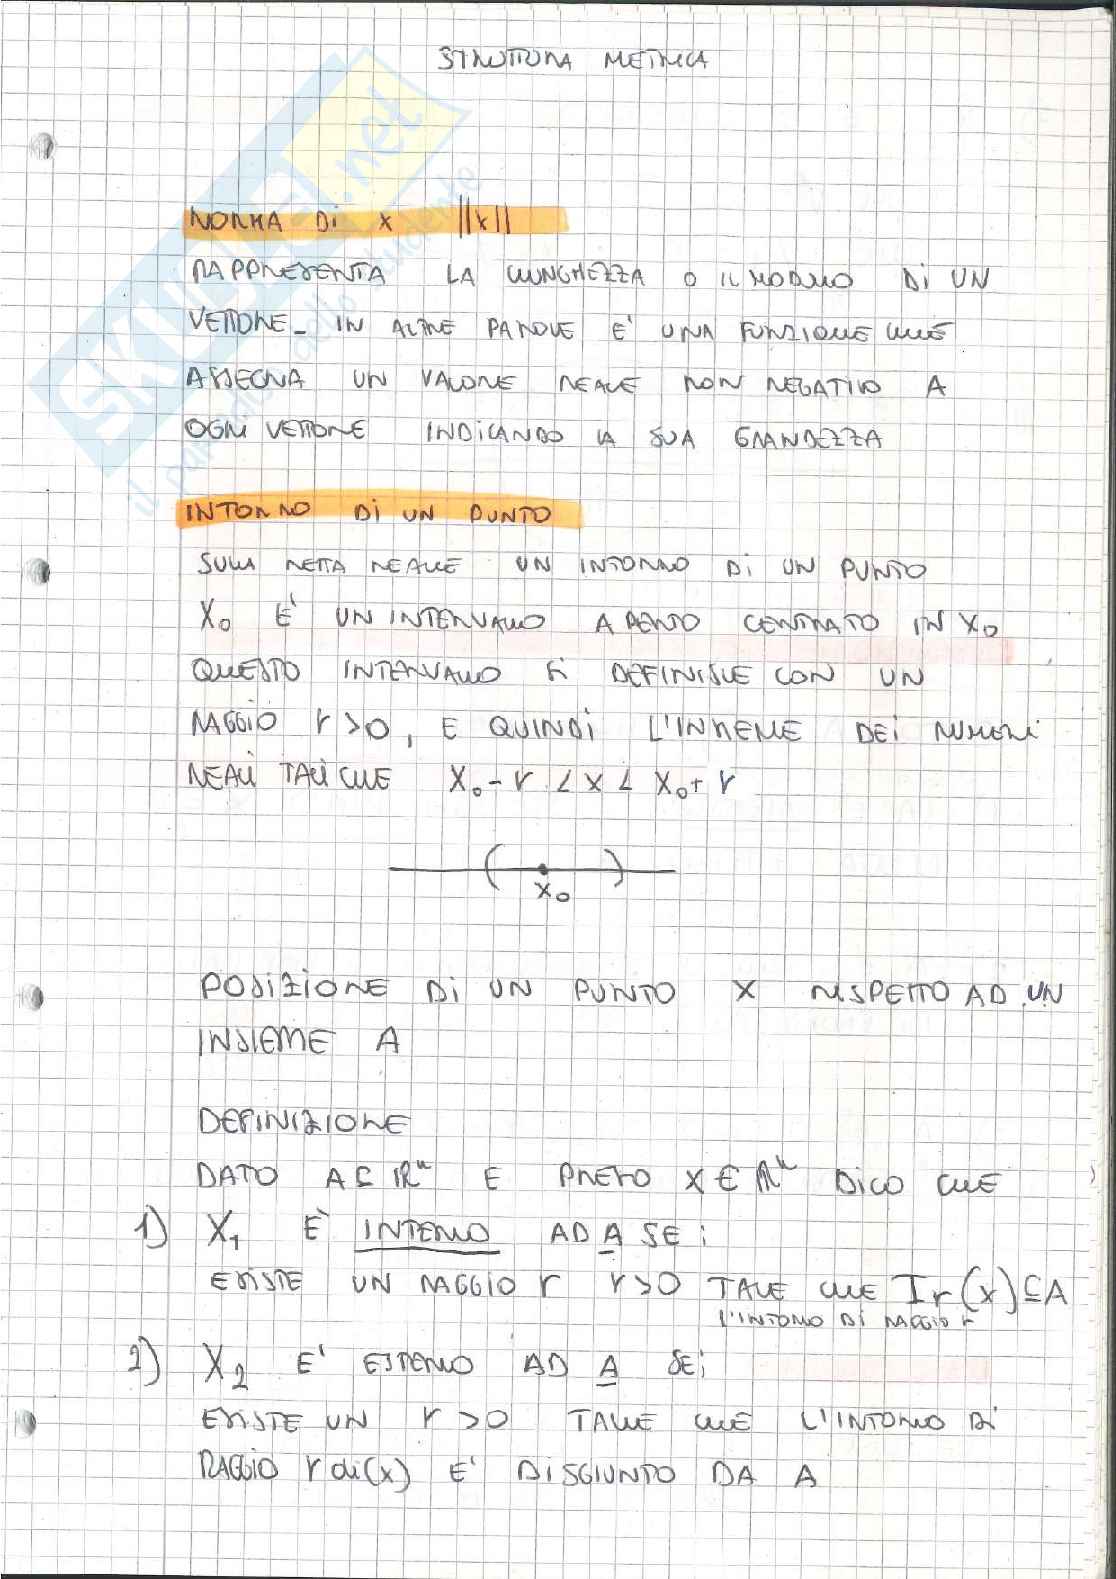 STRUTTURA METRICA
NORMA DI X ||x||
RAPPRESENTA LA LUNGHEZZA O IL MODULO DI UN
VETTORE_ IN ALTRE PAROLE E' UNA FUNZIONE CHE
ASSEGNA UN VALORE REALE NON NEGATIVO A
OGNI VETTORE INDICANDO LA SUA GRANDEZZA
INTORNO DI UN PUNTO
SULLA RETTA REALE UN INTORNO DI UN PUNTO
X₀ E' UN INTERVALLO APERTO CENTRATO IN X₀
QUESTO INTERVALLO SI DEFINISCE CON UN
RAGGIO r >0, E QUINDI L'INSIEME DEI NUMERI
REALI TALI CHE X₀ - r < X < X₀ + r
X₀
POSIZIONE DI UN PUNTO X RISPETTO AD UN
INSIEME A
DEFINIZIONE
DATO A ⊆ ℝⁿ E PRESO X ∈ ℝⁿ DICO CHE
1) X₁ È INTERNO AD A SE:
ESISTE UN RAGGIO r r>0 TALE CHE Ir(x) ⊆ A
L'INTORNO DI RAGGIO r
2) X₂ E' ESTERNO AD A SE;
ESISTE UN r >0 TALE CHE L'INTORNO DI
RAGGIO r di (x) E' DISGIUNTO DA A
SKUOLA.net
il paradiso dello studente